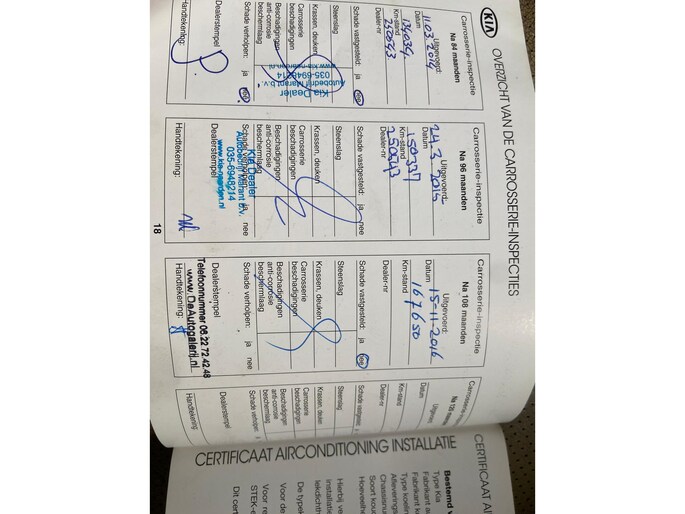 KIA
OVERZICHT VAN DE CARROSSERIE-INSPECTIES
Carrosserie-inspectie
Na 84 maanden
Uitgevoerd:
Datum 11.03.2014
Km-stand 134034
Dealer-nr 250543
Schade vastgesteld: ja nee
Steenslag
Krassen, deuken
Carrosserie
beschadigingen
Beschadigingen
anti-corrosie
beschermlaag
Schade verholpen: ja nee
Dealerstempel
Kia Dealer
Autobedrijf Marant b.v.
035-6948214
www.kia-naarden.nl
Handtekening:
Carrosserie-inspectie
Na 96 maanden
Uitgevoerd:
Datum 24.3.2015
Km-stand 150337
Dealer-nr 250543
Schade vastgesteld: ja nee
Steenslag
Krassen, deuken
Carrosserie
beschadigingen
Beschadigingen
anti-corrosie
beschermlaag
Schade verholpen: ja nee
Dealerstempel
Kia Dealer
Autobedrijf Marant B.V.
035-6948214
www.kia-naarden.nl
Handtekening:
Carrosserie-inspectie
Na 108 maanden
Uitgevoerd:
Datum 15-11-2016
Km-stand 167650
Dealer-nr
Schade vastgesteld: ja nee
Steenslag
Krassen, deuken
Carrosserie
beschadigingen
Beschadigingen
anti-corosie
beschermlaag
Schade verholpen: ja nee
Dealerstempel
Telefoonnummer 06.22 72 42 48
www. DeAutogalerij.nl
Handtekening:
Carrosserie-inspectie
Na 120
Datum
Km-stand
Dealer-nr
Schade vastgesteld:
Steenslag
Krassen, deuken
Carrosserie
beschadigingen
Beschadigingen
anti-corrosie
beschermlaag
Schade verholpen:
Dealerstempel
Handtekening:
18
CERTIFICAAT AIRCONDITIONING INSTALLATIE
CERTIFICAAT
Bestemd
Type Kia
Fabrikant
Fabrikant
Type
Chassisnu
Soort
Hoeveelhe
Hierbij
installatie
lekdicht
De
Voor de
Voor
STEK-
Dit cert